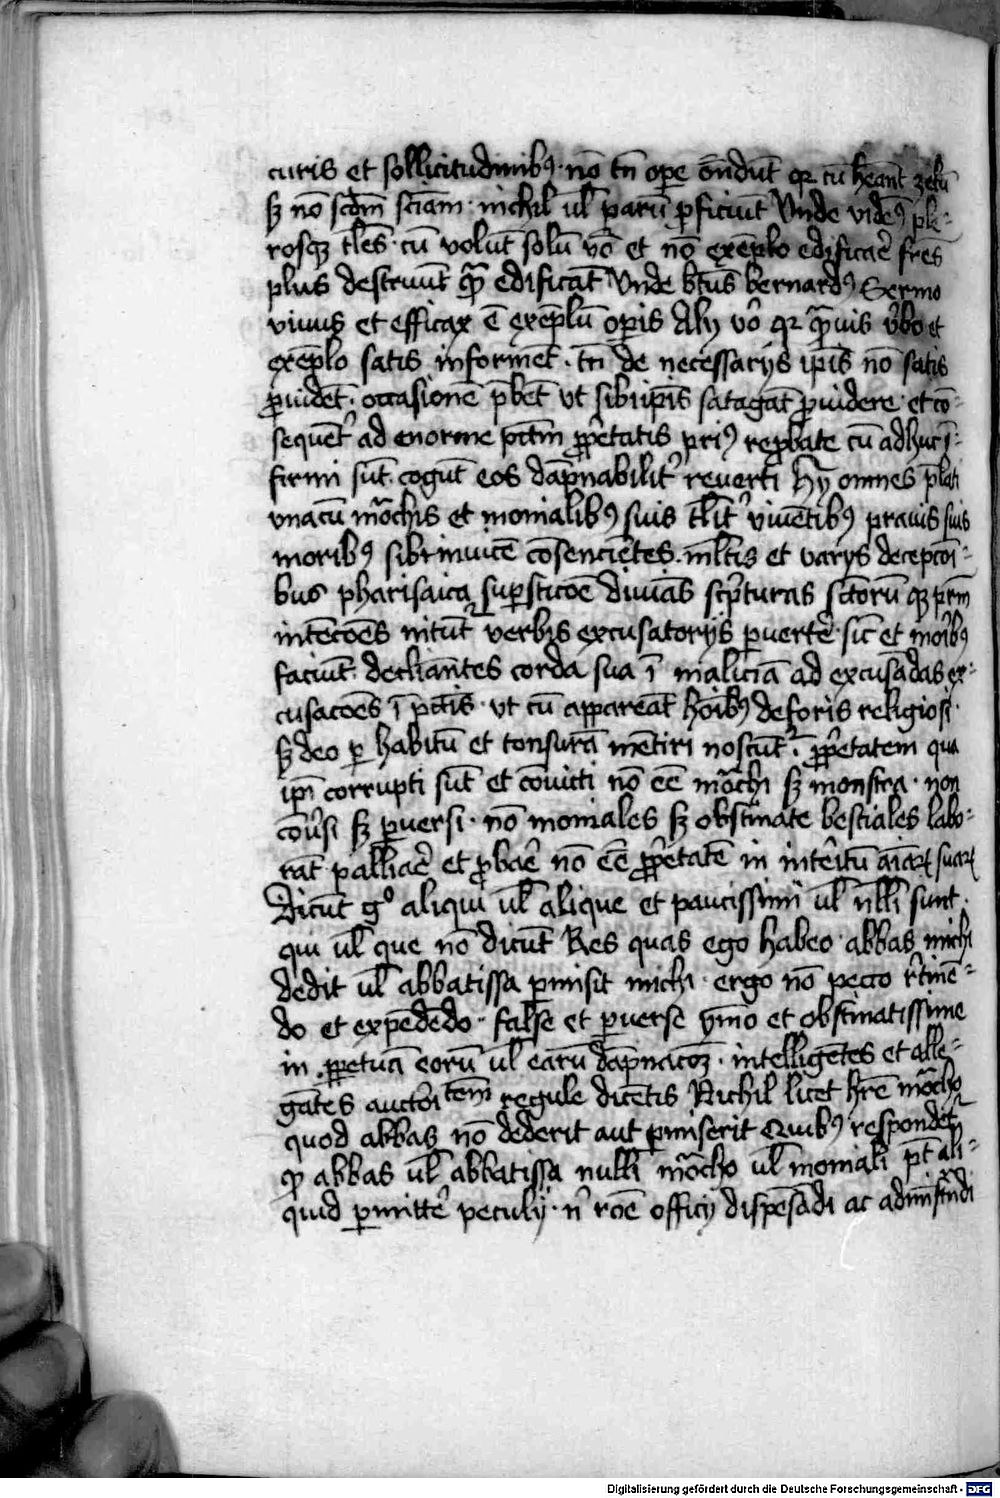 curis et sollicitudinibꝫ · nō tn̄ oꝑe on̄dūt qꝛ cū hēant zelū
sꝫ nō scdm̄ sciām · nichil ul̄ parū ꝓficiūt Unde vidēꝰ ple-
rosqꝫ tl̄es · cū volūt solū v̄o et nō exēplo edificaē fr̄es
plus destruūt qᷓ edificāt Unde bt̄us bernardꝰ Sermo
viuus et efficax ē exēplū oꝑis Alij v̄o qꝛ qᷓuis v̄bo et
exēplo satis informēt · tn̄ de necessarijs ip̄is nō satis
ꝓuidēt · occasionē p̄bēt vt sibijpīs satagāt ꝓuidere · et cō-
sequēt̉ ad enorme pctm̄ ꝓp̉etatis priꝰ reꝓbate cū adhuc ī-
firmi sūt · cogūt eos dāpnabilit̉ reuerti Hij omnes p̄lati
vnacū mōchis et monialibꝰ suis tl̄it̉ viuētibꝰ prauis suis
moribꝰ sibi inuicē cōsenciētes · ml̄tis et varijs decepcōi-
bus pharisaica suꝑsticōe diuīas sc̉pturas sctōrū qꝫ pr̄m
intēcōes nitūt̉ verbis excusatorijs ꝑuert̉e · sic̄ et moībꝰ
faciūt · declīantes corda sua ī maliciā ad excusādas ex-
cusacōes ī pctīs · vt cū appareāt hoībꝰ deforis religiosi ·
sꝫ deo ꝑ habitū et tonsurā mētiri noscūt̉ · ꝓp̉etatem qua
ip̄i corrupti sūt et cōuicti nō eē mōchi sꝫ monstra · non
cōu̓si sꝫ ꝑuersi · nō moniales sꝫ obstinate bestiales labo-
rāt palliaē et ꝓbaē nō eē ꝓp̉etatē in int̉itū aīaꝝ suaꝝ
Dicūt gͦ aliqui ul̄ alique et paucissimi ul̄ nll̄i sunt ·
qui ul̄ que nō dicūt Res quas ego habeo · abbas michi
dedit ul̄ abbatissa ꝑmisit michi · ergo nō pecco r̉tinē-
do et expēdēdo · false et ꝑuerse ymō et obstinatissime
in ꝑpetuā eorū ul̄ earū dāpnacōꝫ · intelligētes et alle-
gātes auctōitem̄ regule dicētis Nichil licet hr̄e mōcho
quod abbas nō dederit aut ꝑmiserit Quibꝰ respondet̉
qꝙ abbas ul̄ abbatissa nulli mōcho ul̄ moniali pt̄ ali-
quid ꝑmitt̉e peculij · n̄ rōe officij dispēsādi ac admīstrādi